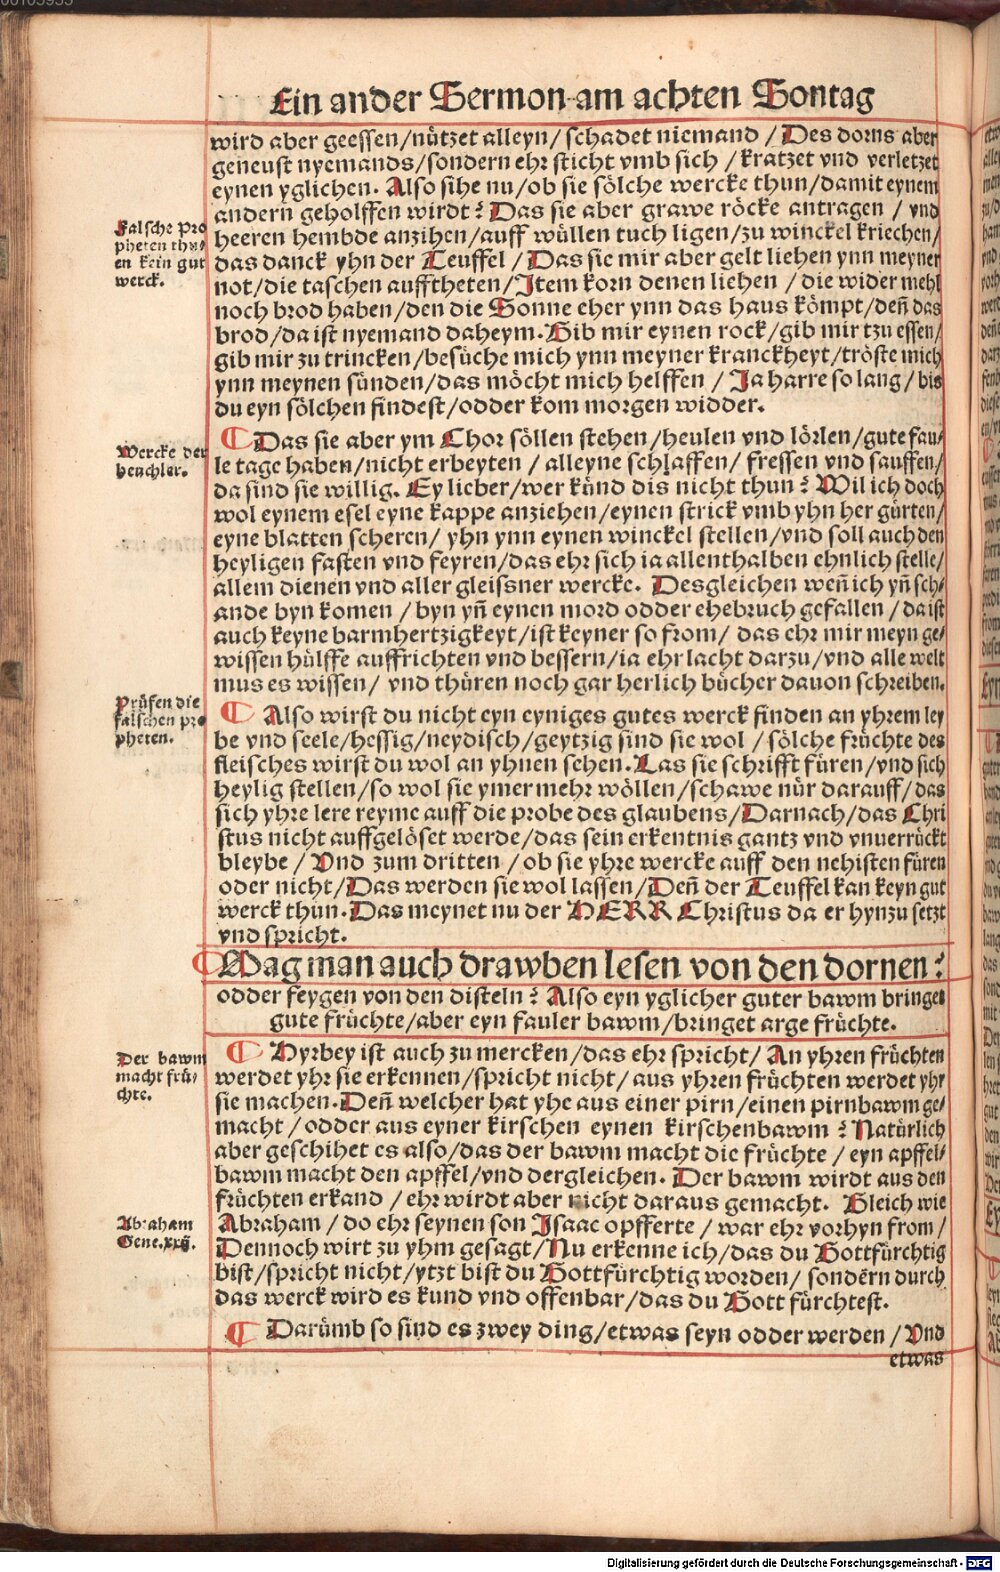 Ein ander Sermon am achten Sontag
wird aber geessen/nützet alleyn/schadet niemand/Des dorns aber
geneust nyemands/sondern ehr sticht vmb sich/kratzet vnd verletzet
eynen yglichen. Also sihe nu/ob sie sölche wercke thun/damit eynem
andern geholffen wirdt? Das sie aber grawe röcke antragen/vnd
Falsche pro
pheten thu-
en kein gut
werck.
heeren hembde anzihen/auff wüllen tuch ligen/zu winckel kriechen/
das danck yhn der Teuffel/Das sie mir aber gelt liehen ynn meyner
not/die taschen aufftheten/Item korn denen liehen/die wider mehl
noch brod haben/den die Sonne eher ynn das haus kömpt/deñ das
brod/da ist nyemand daheym. Gib mir eynen rock/gib mir tzu essen/
gib mir zu trincken/besüche mich ynn meyner kranckheyt/tröste mich
ynn meynen sünden/das möcht mich helffen/Ja harre so lang/bis
du eyn sölchen findest/odder kom morgen widder.
Wercke der
heuchler.
Das sie aber ym Chor söllen stehen/heulen vnd lörlen/gute fau-
le tage haben/nicht erbeyten/alleyne schlaffen/fressen vnd sauffen/
da sind sie willig. Ey lieber/wer künd dis nicht thun? Wil ich doch
wol eynem esel eyne kappe anziehen/eynen strick vmb yhn her gürten/
eyne blatten scheren/yhn ynn eynen winckel stellen/vnd soll auch den
heyligen fasten vnd feyren/das ehr sich ia allenthalben ehnlich stelle/
allem dienen vnd aller gleissner wercke. Desgleichen weñ ich yñ sch-
ande byn komen/byn yñ eynen mord odder ehebruch gefallen/da ist
auch keyne barmhertzigkeyt/ist keyner so from/das ehr mir meyn ge-
wissen hülffe auffrichten vnd bessern/ia ehr lacht darzu/vnd alle welt
mus es wissen/vnd thüren noch gar herlich bücher dauon schreiben.
Prüfen die
falschen pro
pheten.
Also wirst du nicht eyn eyniges gutes werck finden an yhrem ley
be vnd seele/hessig/neydisch/geytzig sind sie wol/sölche früchte des
fleisches wirst du wol an yhnen sehen. Las sie schrifft füren/vnd sich
heylig stellen/so wol sie ymer mehr wöllen/schawe nür darauff/das
sich yhre lere reyme auff die probe des glaubens/Darnach/das Chri
stus nicht auffgelöset werde/das sein erkentnis gantz vnd vnuerrückt
bleybe/Vnd zum dritten/ob sie yhre wercke auff den nehisten füren
oder nicht/Das werden sie wol lassen/Deñ der Teuffel kan keyn gut
werck thun. Das meynet nu der HERR Christus da er hynzu setzt
vnd spricht.
Mag man auch drawben lesen von den dornen?
odder feygen von den disteln? Also eyn yglicher guter bawm bringet
gute früchte/aber eyn fauler bawm/bringet arge früchte.
Der bawm
macht frü-
chte.
Hyrbey ist auch zu mercken/das ehr spricht/An yhren früchten
werdet yhr sie erkennen/spricht nicht/aus yhren früchten werdet yhr
sie machen. Deñ welcher hat yhe aus einer pirn/einen pirnbawm ge-
macht/odder aus eyner kirschen eynen kirschenbawm? Natürlich
aber geschihet es also/das der bawm macht die früchte/eyn apffel-
bawm macht den apffel/vnd dergleichen. Der bawm wirdt aus den
früchten erkand/ehr wirdt aber nicht daraus gemacht. Gleich wie
Abraham
Gene.xxij.
Abraham/do ehr seynen son Isaac opfferte/war ehr vorhyn from/
Dennoch wirt zu yhm gesagt/Nu erkenne ich/das du Gottfürchtig
bist/spricht nicht/ytzt bist du Gottfürchtig worden/sondern durch
das werck wird es kund vnd offenbar/das du Gott fürchtest.
Darümb so sind es zwey ding/etwas seyn odder werden/Vnd
etwas
Digitalisierung gefördert durch die Deutsche Forschungsgemeinschaft - DFG